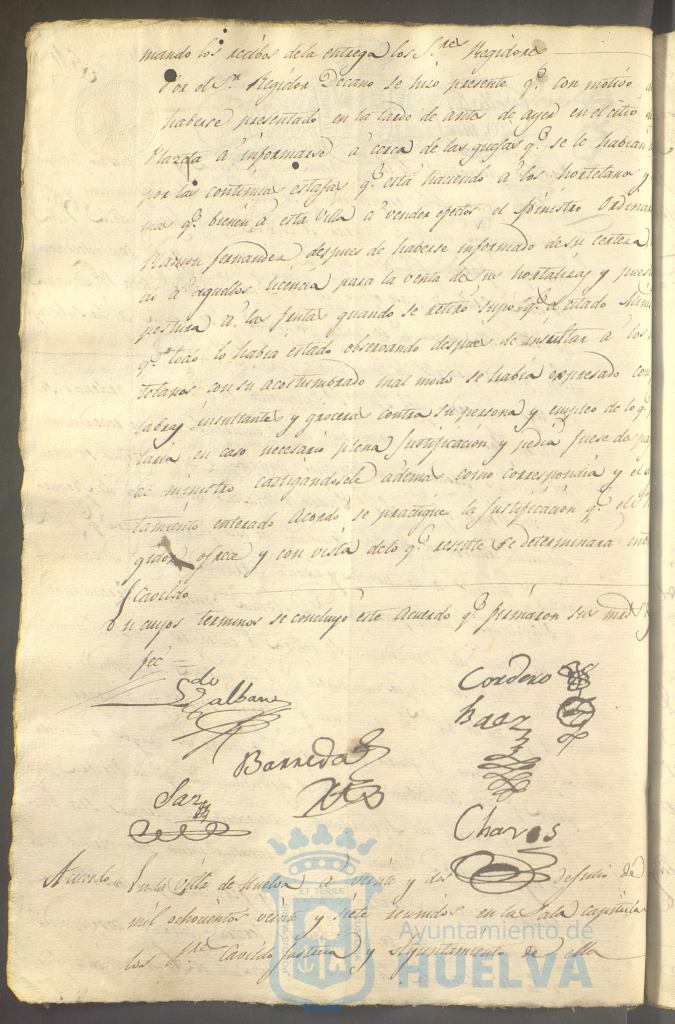 mando los recibos de la entrega los S.res Regidores
Por el S.r Regidor Decano se hizo presente q.e con motivo
haberse presentado en la tarde de antes de ayer en el citio
Plazeta a informarse a cerca de las quejas q.e se le habian
por las continuas estafas q.e está haciendo a los hortelanos y
mas q.e bienen a esta Villa a vender efectos el Ministro Ordina
Ramon Fernandez despues de haberse informado de su certeza
do a aquellos licencia para la venta de sus hortalizas y pues
postura a las frutas quando se retiró supo q.e el citado Mini
q.e todo lo habia estado observando despues de insultar a los
telanos con su acostumbrado mal modo se habia expresado con
labras insultantes y groceras contra su persona y empleo de lo q.e
taria en caso necesario plena justificacion y pedia fuese
ministro castigandosele ademas como correspondia y el
tamiento enterado Acordó se practique la justificacion q.e el
gidor ofrece y con vista de lo q.e resulte se determinará
Cavildo
En cuyos terminos se concluyó este Acuerdo q.e firmaron sus mrds
feé =
L.do Galban
Cordero
Baez
Barreda
Saz
Chaves
Acuerdo = En la Villa de Huelva a veinte y dos de Julio de
mil ochocientos veinte y siete reunidos en la Sala capitula
los S.res Cavildo Justicia y Ayuntamiento de ella
ET TERRÆ
Ayuntamiento de
HUELVA